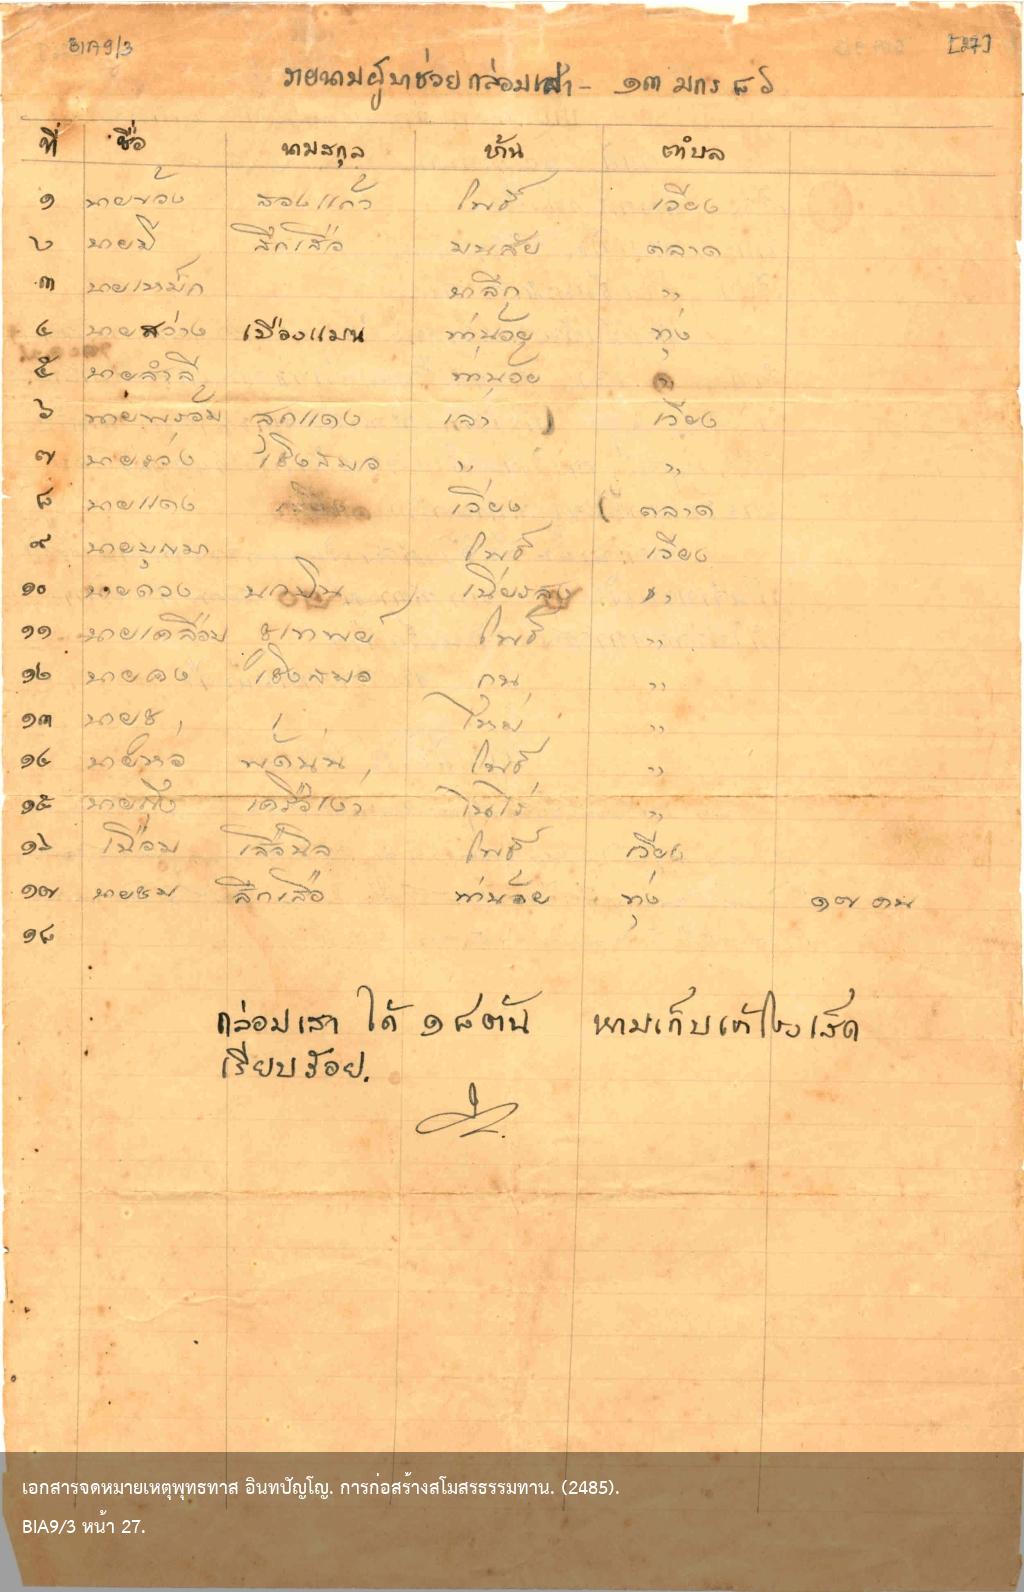 BIA9/3 [27]
รายนามผู้มาช่วยกล่อมเสา - ๑๓ มกร ๘๖
ที่ ชื่อ นามสกุล บ้าน ตำบล
๑ สองแก้ว โพธิ์ เวียง
๒ นายมี สึกเสือ ตลาด
๓ นายเหม็ก นาลึก ,,
๔ นายสว่าง เมืองแมน ท่าน้อย ทุ่ง
๕ นายสำลี ท่าน้อย ,,
๖ นายพร้อม สุกแดง เล่า เวียง
๗ นายช่วง เชิงสมอ ,, ,,
๘ นายแดง เวียง ตลาด
๙ นายบุญมา โพธิ์ เวียง
๑๐ นายดวง ,,
๑๑ นายเคลื่อน ชูเทพย์ โพธิ์ ,,
๑๒ นายคง เชิงสมอ ,,
๑๓ นายชู ใหม่ ,,
๑๔ พัดนุ่น โพธิ์ ,,
๑๕ นายกุ้ง เครือเงา ในไร่ ,,
๑๖ เนื่อม เลื่อนิล โพธิ์ เวียง
๑๗ นายชม สึกเสือ ท่าน้อย ทุ่ง ๑๗ คน
๑๘
กล่อมเสา ได้ ๑๘ ต้น หามเก็บเข้าโรงเสร็ด
เรียบร้อย.
เอกสารจดหมายเหตุพุทธทาส อินทปัญโญ. การก่อสร้างสโมสรธรรมทาน. (2485).
BIA9/3 หน้า 27.